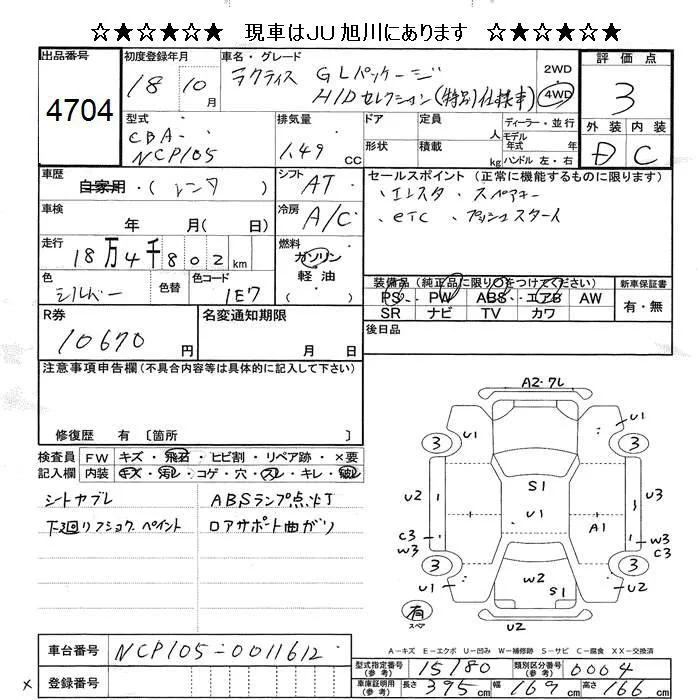 ☆★☆★☆★ 現車はJU旭川にあります ☆★☆★☆★
出品番号
4704
初度登録年月
18 10 月
車名・グレード
ラクティス GLパッケージ
HIDセレクション(特別仕様車)
2WD
4WD
評価点
3
外装 内装
D C
型式
CBA-
NCP105
排気量
1.49 cc
ドア
形状
定員 人
積載 kg
ディーラー・並行
モデル
年式 年
ハンドル 左・右
車歴
自家用・(レンタ)
シフト
AT
セールスポイント (正常に機能するものに限ります)
・エンスタ・スペアキー
・etc ・プッシュスタート
車検
年 月( 日)
冷房
A/C
走行
18万4千802km
燃料
ガソリン
軽油
( )
色
シルバー
色替
色コード
1E7
装備品(純正品に限り○をつけてください)
PS PW ABS エアB AW
SR ナビ TV カワ
新車保証書
有・無
R券
10670円
名変通知期限
月 日
後日品
注意事項申告欄(不具合内容等は具体的に記入して下さい)
修復歴 有 〔箇所 〕
検査員
記入欄
FW キズ・飛石・ヒビ割・リペア跡・×要
内装 キズ・汚レ・コゲ・穴・スレ・キレ・破レ
シートヤブレ ABSランプ点灯
下廻リ フショク ペイント ロアサポート曲ガリ
A2・フレ
U1 U1
3 3
S1
U2 U1 U3
A1
C3 W3
W3 C3
3 3
W2
U1 S1 U2
有
スペア
U2
A－キズ E－エクボ U－凹み W－補修跡 S－サビ C－腐食 XX－交換済
車台番号
NCP105-0011612
登録番号
×
型式指定番号
(参考)
15180
類別区分番号
(参考)
0004
車庫証明用
(参考)
長さ 395cm 幅 169cm 高さ 166cm